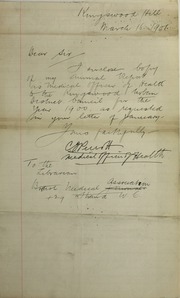 Kingswood Hill
March 16 1901
Dear Sir
I enclose copy
of my Annual Report
as Medical Officer of Health
to the Kingswood Urban
District Council for the
Year 1900 as requested
in your letter of January.
Yours faithfully
Medical Officer of Health
To the
Librarian
British Medical Association
Strand W C